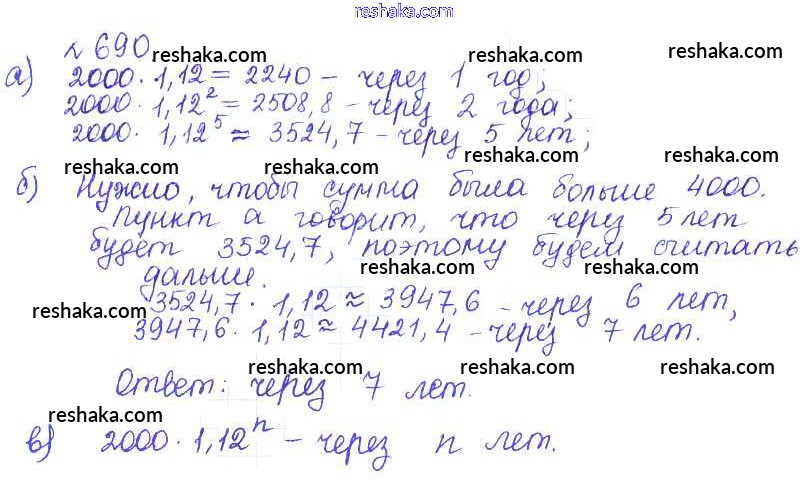 reshaka.com
№ 690
reshaka.com reshaka.com reshaka.com
а) 2000 · 1,12 = 2240 – через 1 год;
2000 · 1,12² = 2508,8 – через 2 года;
2000 · 1,12⁵ ≈ 3524,7 – через 5 лет;
reshaka.com reshaka.com reshaka.com
б) Нужно, чтобы сумма была больше 4000.
Пункт а говорит, что через 5 лет
reshaka.com reshaka.com reshaka.com
будет 3524,7, поэтому будем считать
дальше.
reshaka.com reshaka.com reshaka.com
3524,7 · 1,12 ≈ 3947,6 – через 6 лет,
3947,6 · 1,12 ≈ 4421,4 – через 7 лет.
reshaka.com reshaka.com reshaka.com
Ответ: через 7 лет.
reshaka.com reshaka.com reshaka.com
в) 2000 · 1,12ⁿ – через n лет.